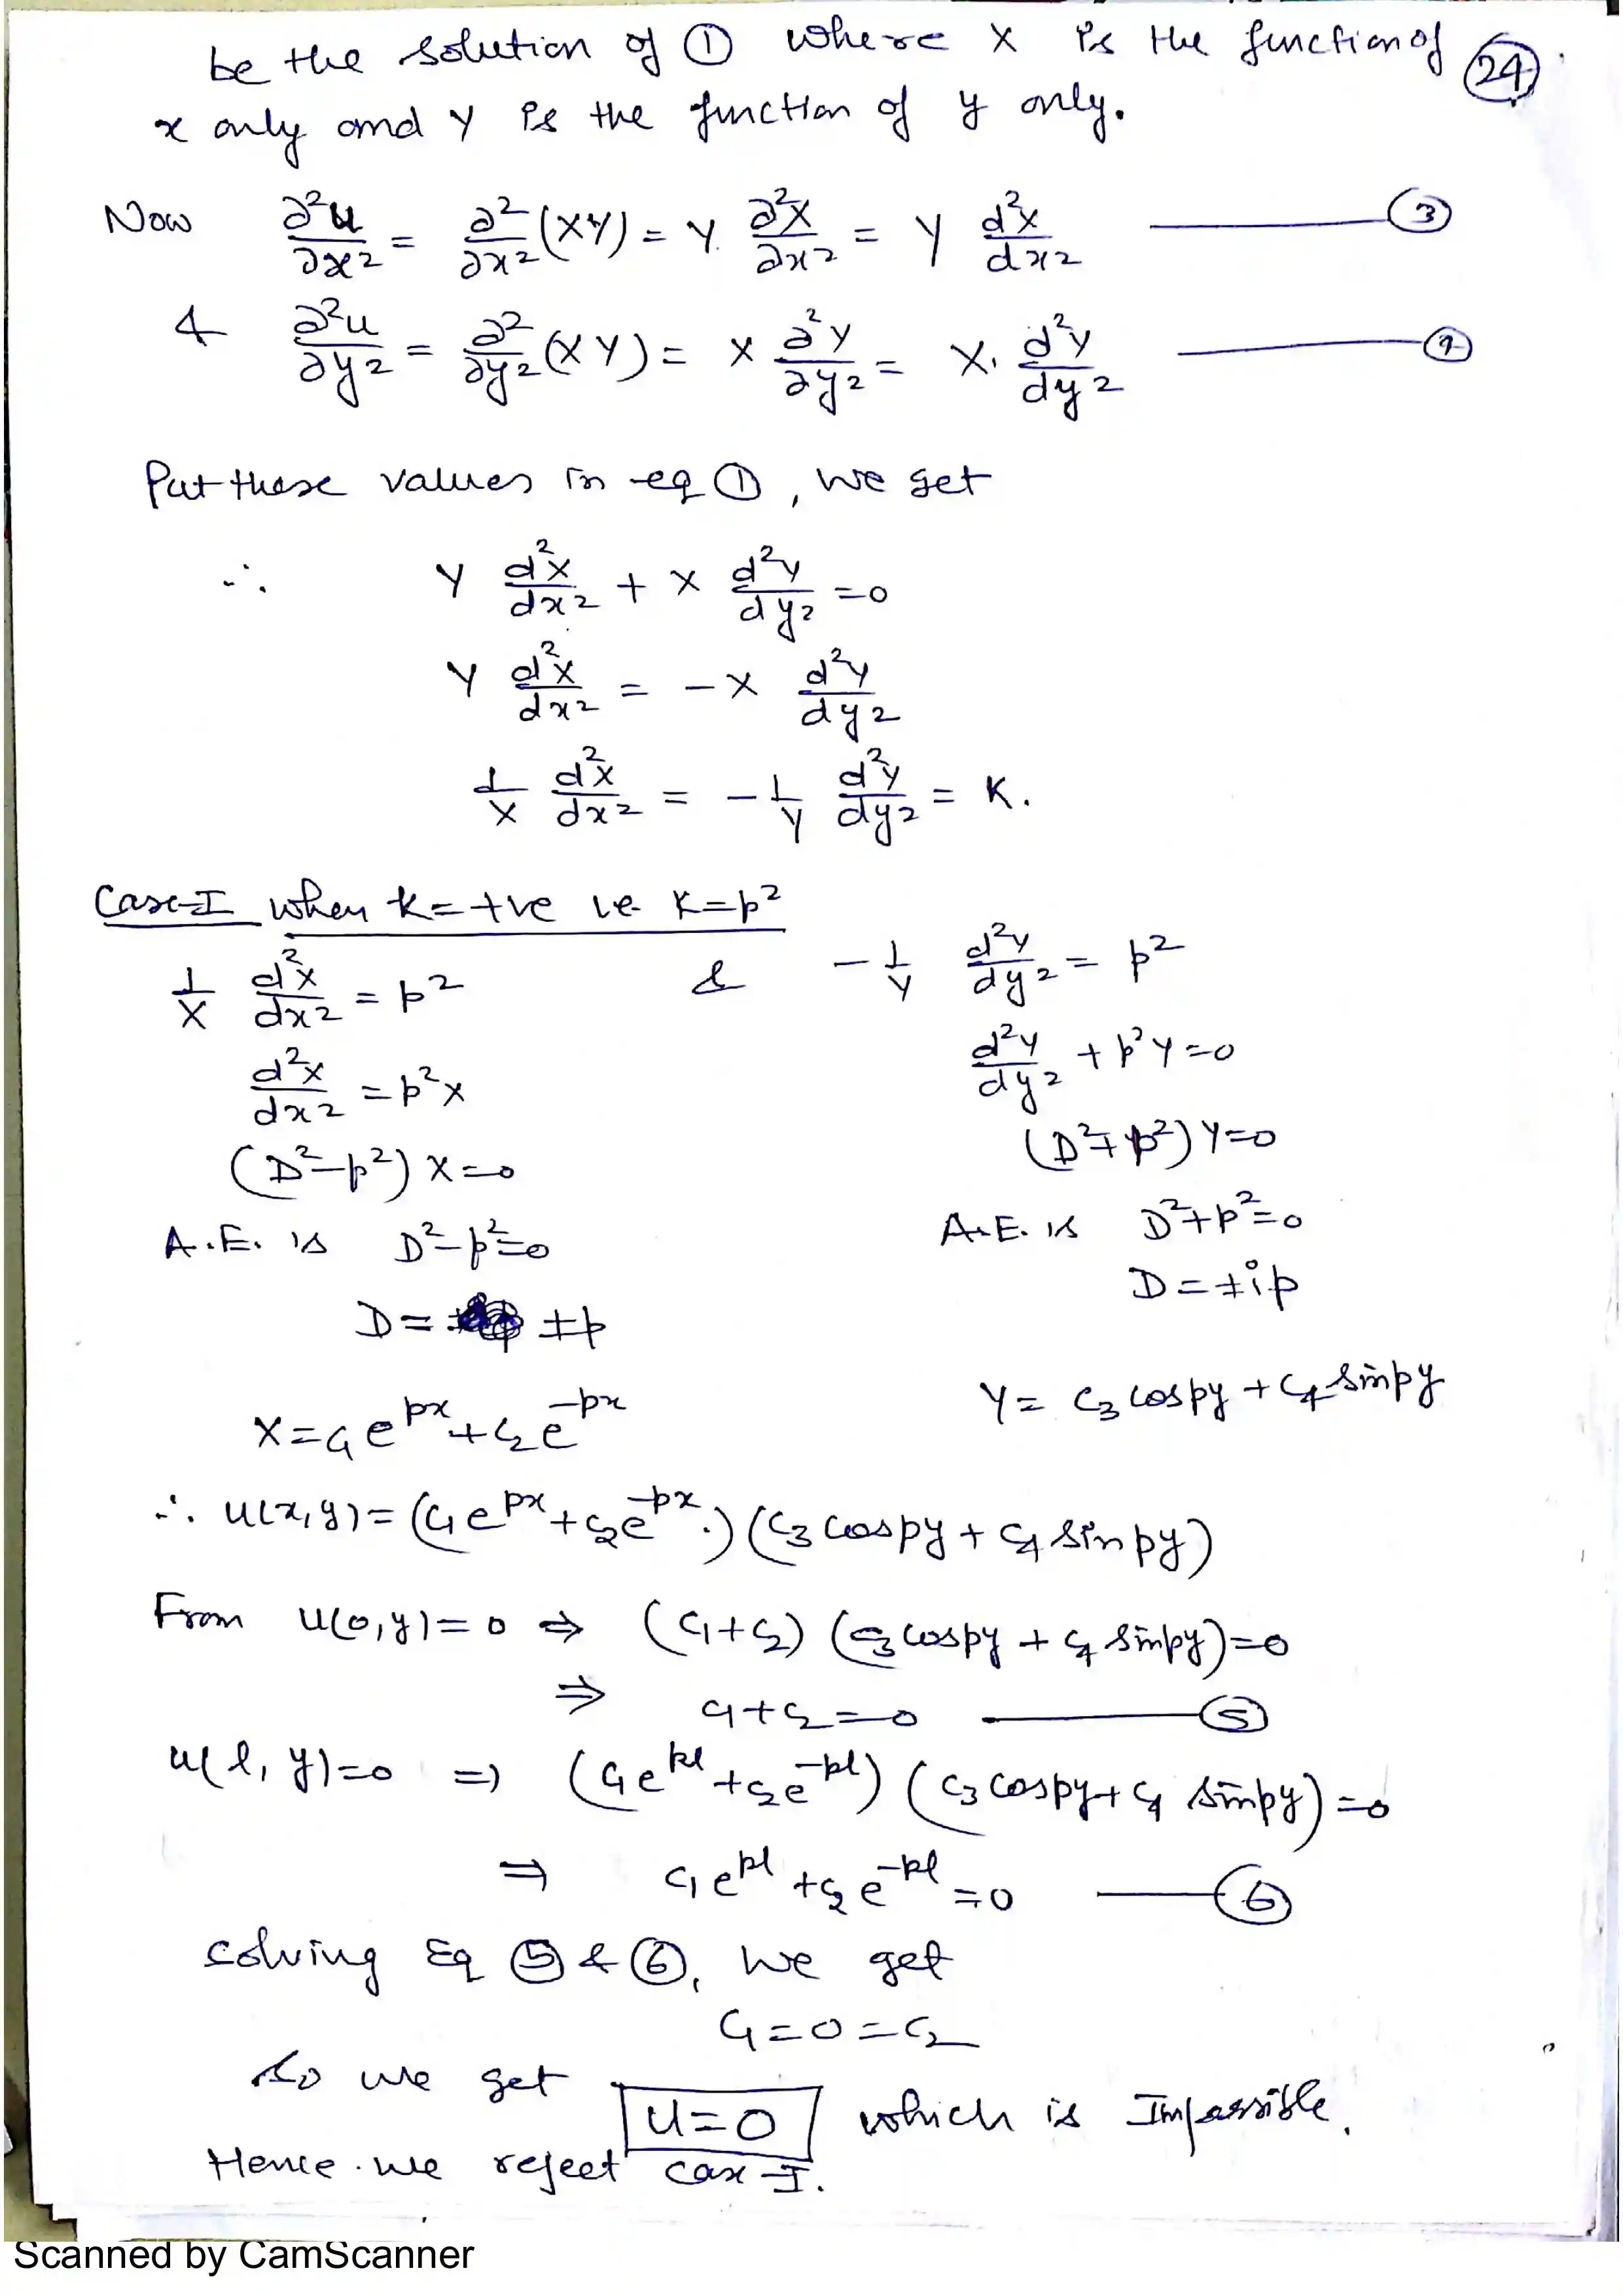 be the solution of ① where X is the function of (24)
x only and Y is the function of y only.
Now ∂²u/∂x² = ∂²/∂x² (XY) = Y. ∂²X/∂x² = Y d²X/dx² ——— ③
& ∂²u/∂y² = ∂²/∂y² (XY) = X ∂²Y/∂y² = X. d²Y/dy² ——— ④
Put these values in eq ①, we get
∴ Y d²X/dx² + X d²Y/dy² = 0
Y d²X/dx² = - X d²Y/dy²
1/X d²X/dx² = - 1/Y d²Y/dy² = K.
Case-I when k = +ve i.e. K = p²
1/X d²X/dx² = p² & - 1/Y d²Y/dy² = p²
d²X/dx² = p²X d²Y/dy² + p²Y = 0
(D² - p²) X = 0 (D² + p²) Y = 0
A.E. is D² - p² = 0 A.E. is D² + p² = 0
D = ± p D = ± i p
X = C₁ e^{px} + C₂ e^{-px} Y = C₃ cos py + C₄ sin py
∴ u(x, y) = (C₁ e^{px} + C₂ e^{-px}.) (C₃ cos py + C₄ sin py)
From u(0, y) = 0 ⇒ (C₁ + C₂) (C₃ cos py + C₄ sin py) = 0
⇒ C₁ + C₂ = 0 ——— ⑤
u(l, y) = 0 ⇒ (C₁ e^{pl} + C₂ e^{-pl}) (C₃ cos py + C₄ sin py) = 0
⇒ C₁ e^{pl} + C₂ e^{-pl} = 0 ——— ⑥
Solving Eq ⑤ & ⑥, we get
C₁ = 0 = C₂
So we get u = 0 which is Impossible.
Hence. we reject case - I.
Scanned by CamScanner